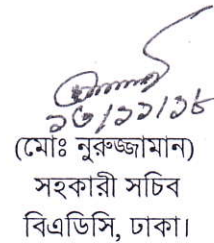 ১৩/১১/১৮
(মোঃ নুরুজ্জামান)
সহকারী সচিব
বিএডিসি, ঢাকা।